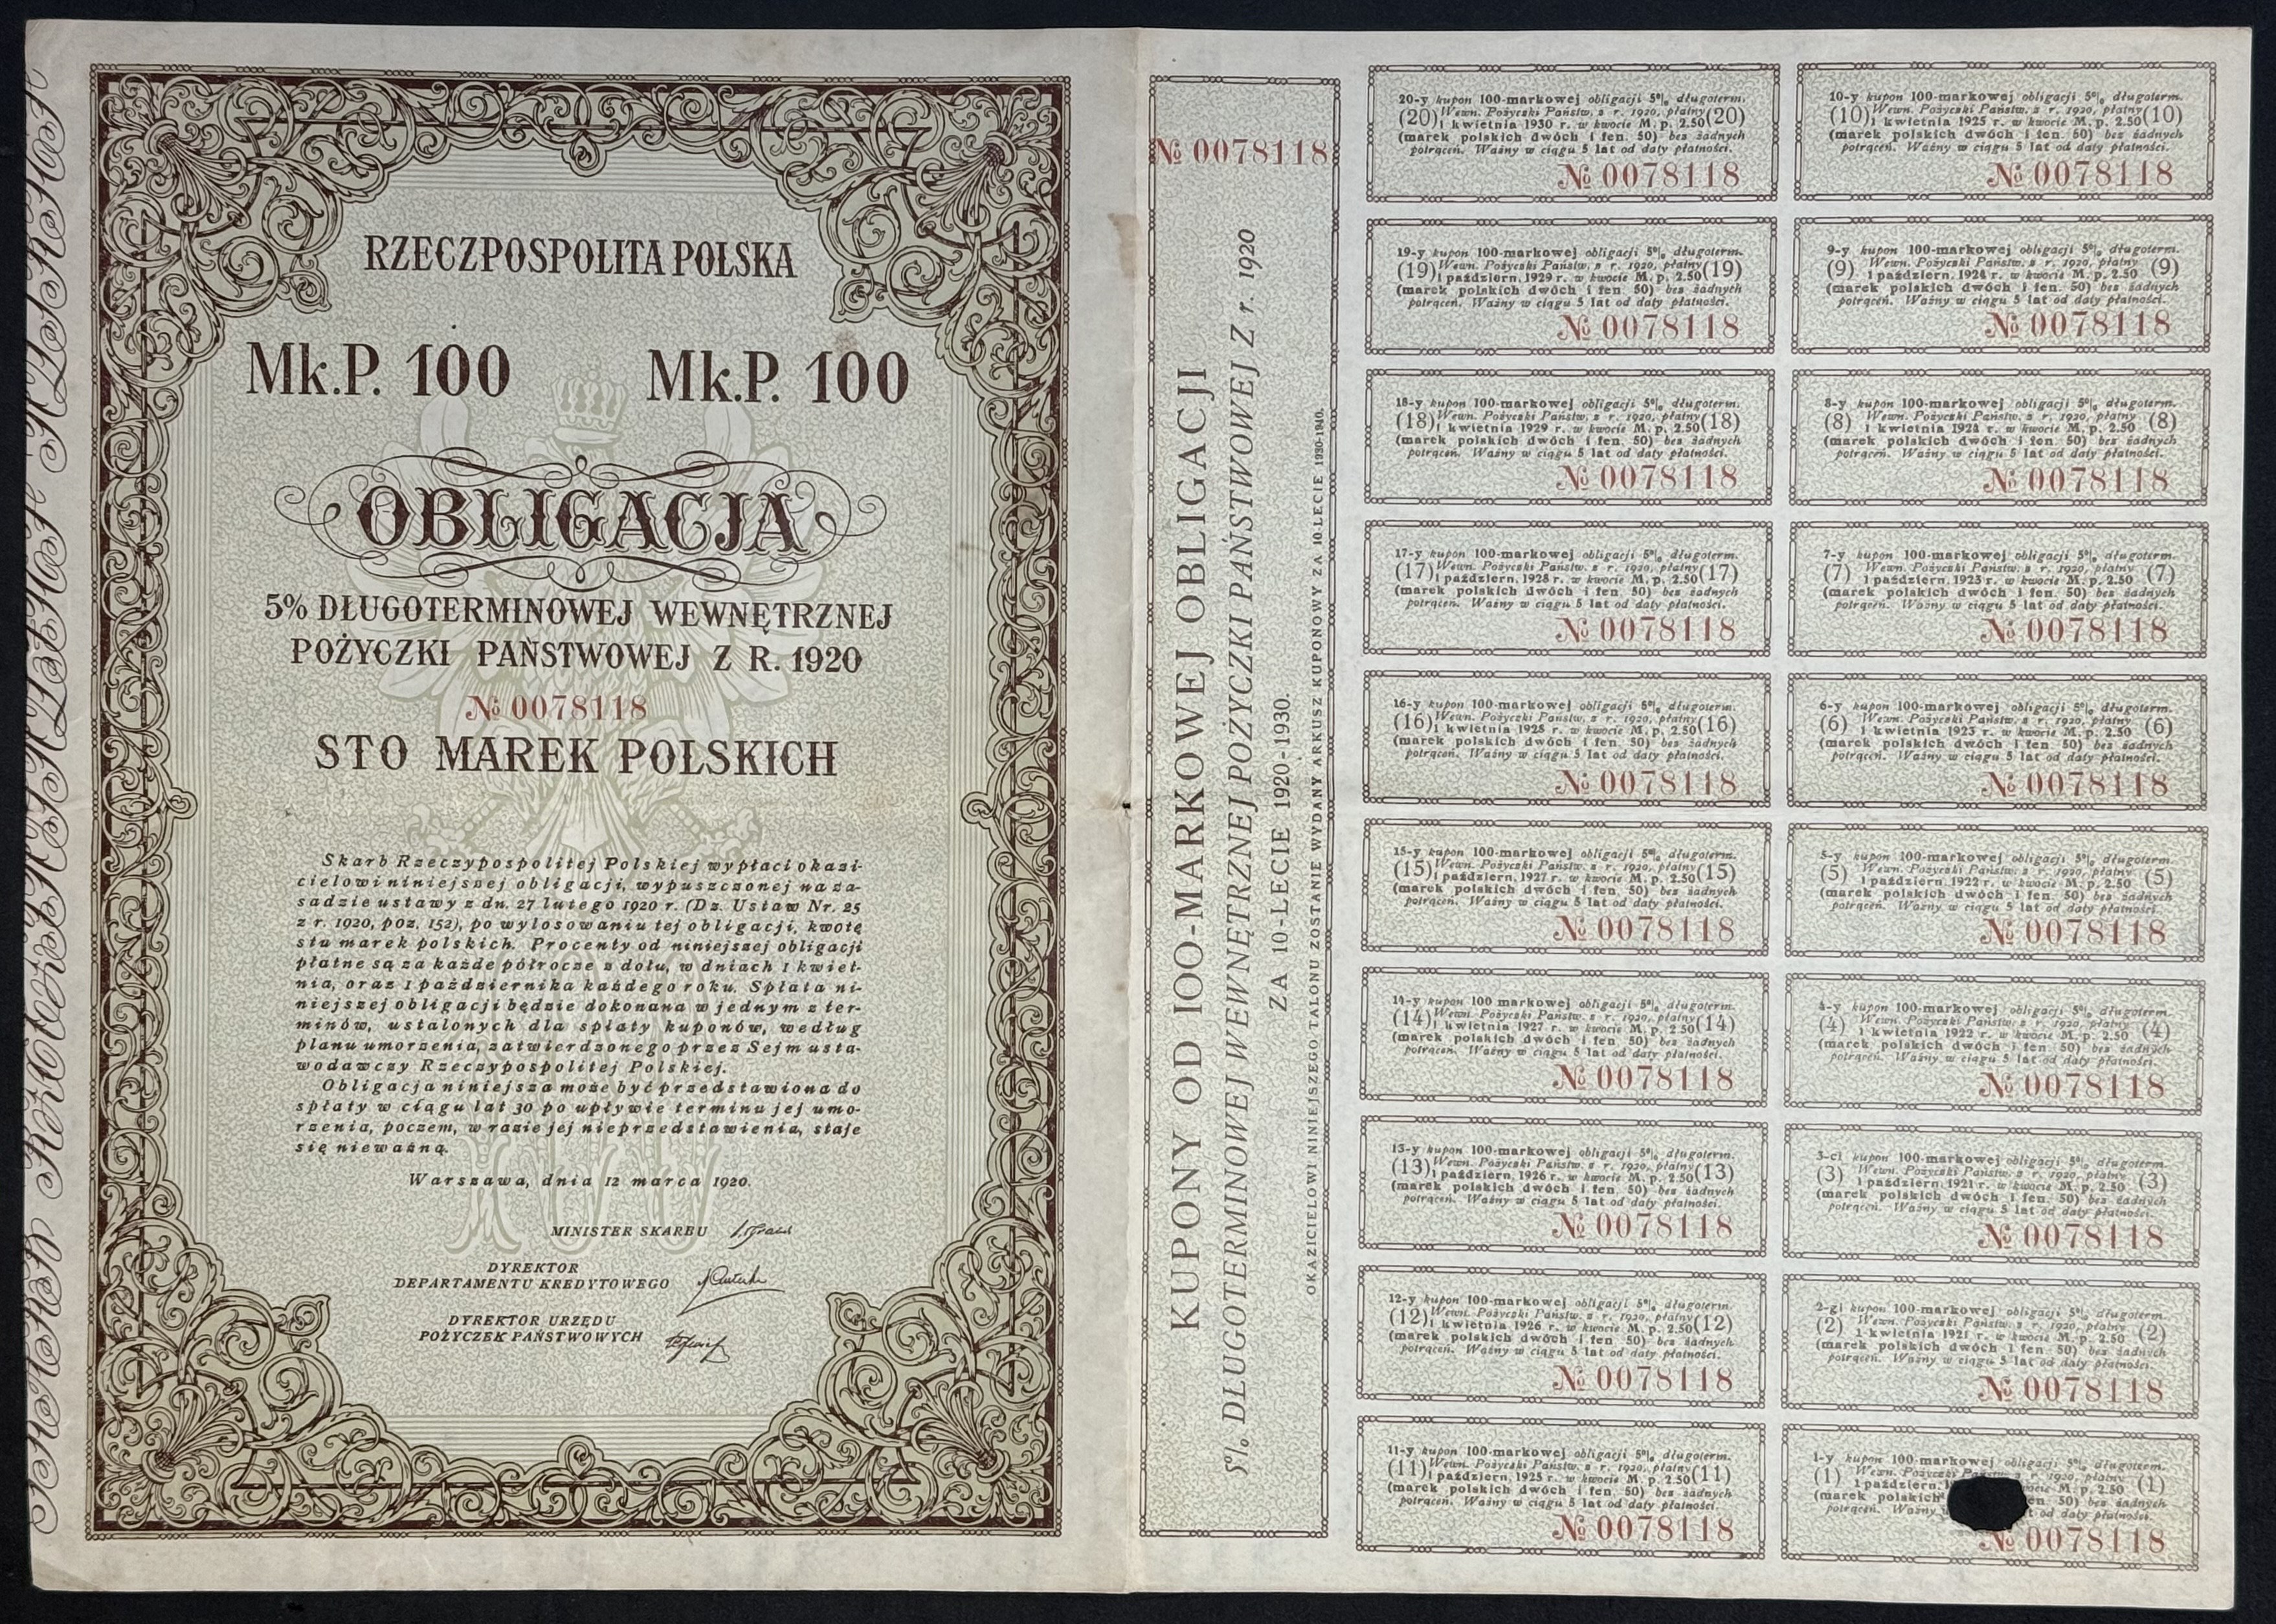 RZECZPOSPOLITA POLSKA
Mk.P. 100 Mk.P. 100
OBLIGACJA
5% DŁUGOTERMINOWEJ WEWNĘTRZNEJ
POŻYCZKI PAŃSTWOWEJ Z R. 1920
№ 0078118
STO MAREK POLSKICH
Skarb Rzeczypospolitej Polskiej wypłaci okazi-
cielowi niniejszej obligacji, wypuszczonej na za-
sadzie ustawy z dn. 27 lutego 1920 r. (Dz. Ustaw Nr. 25
z r. 1920, poz. 152), po wylosowaniu tej obligacji, kwotę
stu marek polskich. Procenty od niniejszej obligacji
płatne są za każde półrocze z dołu, w dniach 1 kwiet-
nia, oraz 1 października każdego roku. Spłata ni-
niejszej obligacji będzie dokonana w jednym z ter-
minów, ustalonych dla spłaty kuponów, według
planu umorzenia, zatwierdzonego przez Sejm usta-
wodawczy Rzeczypospolitej Polskiej.
Obligacja niniejsza może być przedstawiona do
spłaty w ciągu lat 30 po upływie terminu jej umo-
rzenia, poczem, w razie jej nieprzedstawienia, staje
się nieważną.
Warszawa, dnia 12 marca 1920.
MINISTER SKARBU
DYREKTOR
DEPARTAMENTU KREDYTOWEGO
DYREKTOR URZĘDU
POŻYCZEK PAŃSTWOWYCH
№ 0078118
KUPONY OD 100-MARKOWEJ OBLIGACJI
5% DŁUGOTERMINOWEJ WEWNĘTRZNEJ POŻYCZKI PAŃSTWOWEJ Z r. 1920
ZA 10-LECIE 1920-1930.
OKAZICIELOWI NINIEJSZEGO TALONU ZOSTANIE WYDANY ARKUSZ KUPONOWY ZA 10-LECIE 1930-1940.
20-y kupon 100-markowej obligacji 5% długoterm.
(20) Wewn. Pożyczki Państw. z r. 1920, płatny (20)
1 kwietnia 1930 r. w kwocie M. p. 2.50
(marek polskich dwóch i fen. 50) bez żadnych
potrąceń. Ważny w ciągu 5 lat od daty płatności.
№ 0078118
19-y kupon 100-markowej obligacji 5% długoterm.
(19) Wewn. Pożyczki Państw. z r. 1920, płatny (19)
1 październ. 1929 r. w kwocie M. p. 2.50
(marek polskich dwóch i fen. 50) bez żadnych
potrąceń. Ważny w ciągu 5 lat od daty płatności.
№ 0078118
18-y kupon 100-markowej obligacji 5% długoterm.
(18) Wewn. Pożyczki Państw. z r. 1920, płatny (18)
1 kwietnia 1929 r. w kwocie M. p. 2.50
(marek polskich dwóch i fen. 50) bez żadnych
potrąceń. Ważny w ciągu 5 lat od daty płatności.
№ 0078118
17-y kupon 100-markowej obligacji 5% długoterm.
(17) Wewn. Pożyczki Państw. z r. 1920, płatny (17)
1 październ. 1928 r. w kwocie M. p. 2.50
(marek polskich dwóch i fen. 50) bez żadnych
potrąceń. Ważny w ciągu 5 lat od daty płatności.
№ 0078118
16-y kupon 100-markowej obligacji 5% długoterm.
(16) Wewn. Pożyczki Państw. z r. 1920, płatny (16)
1 kwietnia 1928 r. w kwocie M. p. 2.50
(marek polskich dwóch i fen. 50) bez żadnych
potrąceń. Ważny w ciągu 5 lat od daty płatności.
№ 0078118
15-y kupon 100-markowej obligacji 5% długoterm.
(15) Wewn. Pożyczki Państw. z r. 1920, płatny (15)
1 październ. 1927 r. w kwocie M. p. 2.50
(marek polskich dwóch i fen. 50) bez żadnych
potrąceń. Ważny w ciągu 5 lat od daty płatności.
№ 0078118
14-y kupon 100 markowej obligacji 5% długoterm.
(14) Wewn. Pożyczki Państw. z r. 1920, płatny (14)
1 kwietnia 1927 r. w kwocie M. p. 2 50
(marek polskich dwóch i fen. 50) bez żadnych
potrąceń. Ważny w ciągu 5 lat od daty płatności.
№ 0078118
13-y kupon 100-markowej obligacji 5% długoterm.
(13) Wewn. Pożyczki Państw. z r. 1920, płatny (13)
1 październ. 1926 r. w kwocie M. p. 2.50
(marek polskich dwóch i fen. 50) bez żadnych
potrąceń. Ważny w ciągu 5 lat od daty płatności.
№ 0078118
12-y kupon 100-markowej obligacji 5% długoterm.
(12) Wewn. Pożyczki Państw. z r. 1920, płatny (12)
1 kwietnia 1926 r. w kwocie M. p. 2.50
(marek polskich dwóch i fen. 50) bez żadnych
potrąceń. Ważny w ciągu 5 lat od daty płatności.
№ 0078118
11-y kupon 100-markowej obligacji 5% długoterm.
(11) Wewn. Pożyczki Państw. z r. 1920, płatny (11)
1 październ. 1925 r. w kwocie M. p. 2.50
(marek polskich dwóch i fen. 50) bez żadnych
potrąceń. Ważny w ciągu 5 lat od daty płatności.
№ 0078118
10-y kupon 100-markowej obligacji 5% długoterm.
(10) Wewn. Pożyczki Państw. z r. 1920, płatny (10)
1 kwietnia 1925 r. w kwocie M. p. 2.50
(marek polskich dwóch i fen. 50) bez żadnych
potrąceń. Ważny w ciągu 5 lat od daty płatności.
№ 0078118
9-y kupon 100-markowej obligacji 5% długoterm.
(9) Wewn. Pożyczki Państw. z r. 1920, płatny (9)
1 październ. 1924 r. w kwocie M. p. 2.50
(marek polskich dwóch i fen. 50) bez żadnych
potrąceń. Ważny w ciągu 5 lat od daty płatności.
№ 0078118
8-y kupon 100-markowej obligacji 5% długoterm.
(8) Wewn. Pożyczki Państw. z r. 1920, płatny (8)
1 kwietnia 1924 r. w kwocie M. p. 2.50
(marek polskich dwóch i fen. 50) bez żadnych
potrąceń. Ważny w ciągu 5 lat od daty płatności.
№ 0078118
7-y kupon 100-markowej obligacji 5% długoterm.
(7) Wewn. Pożyczki Państw. z r. 1920, płatny (7)
1 październ. 1923 r. w kwocie M. p. 2.50
(marek polskich dwóch i fen. 50) bez żadnych
potrąceń. Ważny w ciągu 5 lat od daty płatności.
№ 0078118
6-y kupon 100-markowej obligacji 5% długoterm.
(6) Wewn. Pożyczki Państw. z r. 1920, płatny (6)
1 kwietnia 1923 r. w kwocie M. p. 2.50
(marek polskich dwóch i fen. 50) bez żadnych
potrąceń. Ważny w ciągu 5 lat od daty płatności.
№ 0078118
5-y kupon 100-markowej obligacji 5% długoterm.
(5) Wewn. Pożyczki Państw. z r. 1920, płatny (5)
1 październ. 1922 r. w kwocie M. p. 2.50
(marek polskich dwóch i fen. 50) bez żadnych
potrąceń. Ważny w ciągu 5 lat od daty płatności.
№ 0078118
4-y kupon 100-markowej obligacji 5% długoterm.
(4) Wewn. Pożyczki Państw. z r. 1920, płatny (4)
1 kwietnia 1922 r. w kwocie M. p. 2.50
(marek polskich dwóch i fen. 50) bez żadnych
potrąceń. Ważny w ciągu 5 lat od daty płatności.
№ 0078118
3-ci kupon 100-markowej obligacji 5% długoterm.
(3) Wewn. Pożyczki Państw. z r. 1920, płatny (3)
1 październ. 1921 r. w kwocie M. p. 2.50
(marek polskich dwóch i fen. 50) bez żadnych
potrąceń. Ważny w ciągu 5 lat od daty płatności.
№ 0078118
2-gi kupon 100-markowej obligacji 5% długoterm.
(2) Wewn. Pożyczki Państw. z r. 1920, płatny (2)
1 kwietnia 1921 r. w kwocie M. p. 2.50
(marek polskich dwóch i fen. 50) bez żadnych
potrąceń. Ważny w ciągu 5 lat od daty płatności.
№ 0078118
1-y kupon 100-markowej obligacji 5% długoterm.
(1) Wewn. Pożyczki Państw. z r. 1920, płatny (1)
1 październ. M. p. 2.50
(marek polskich 50) bez żadnych
potrąceń. Ważny od daty płatności.
№ 0078118